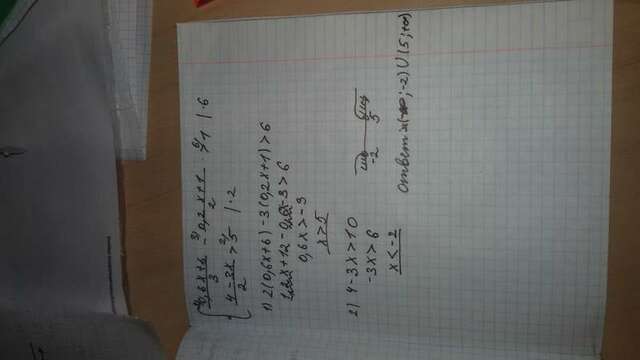 { 0,6x+6/3 - 0,2x+1/2 > 1 | ·6
4-3x/2 > 5 | ·2
1) 2(0,6x+6) - 3(0,2x+1) > 6
0,6x > -3
x > 5
2) 4-3x > 10
-3x > 6
x < -2
-2 5
ответ: (-∞; -2) ∪ (5; +∞)